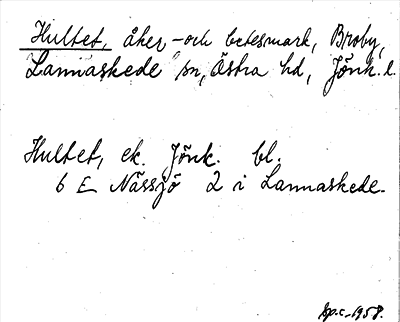 Hultet, åker- och betesmark, Broby,
Lannaskede sn, Östra hd, Jönk. l.
Hultet, ek. Jönk. bl.
6 E Nässjö 2 i Lannaskede.
1958.